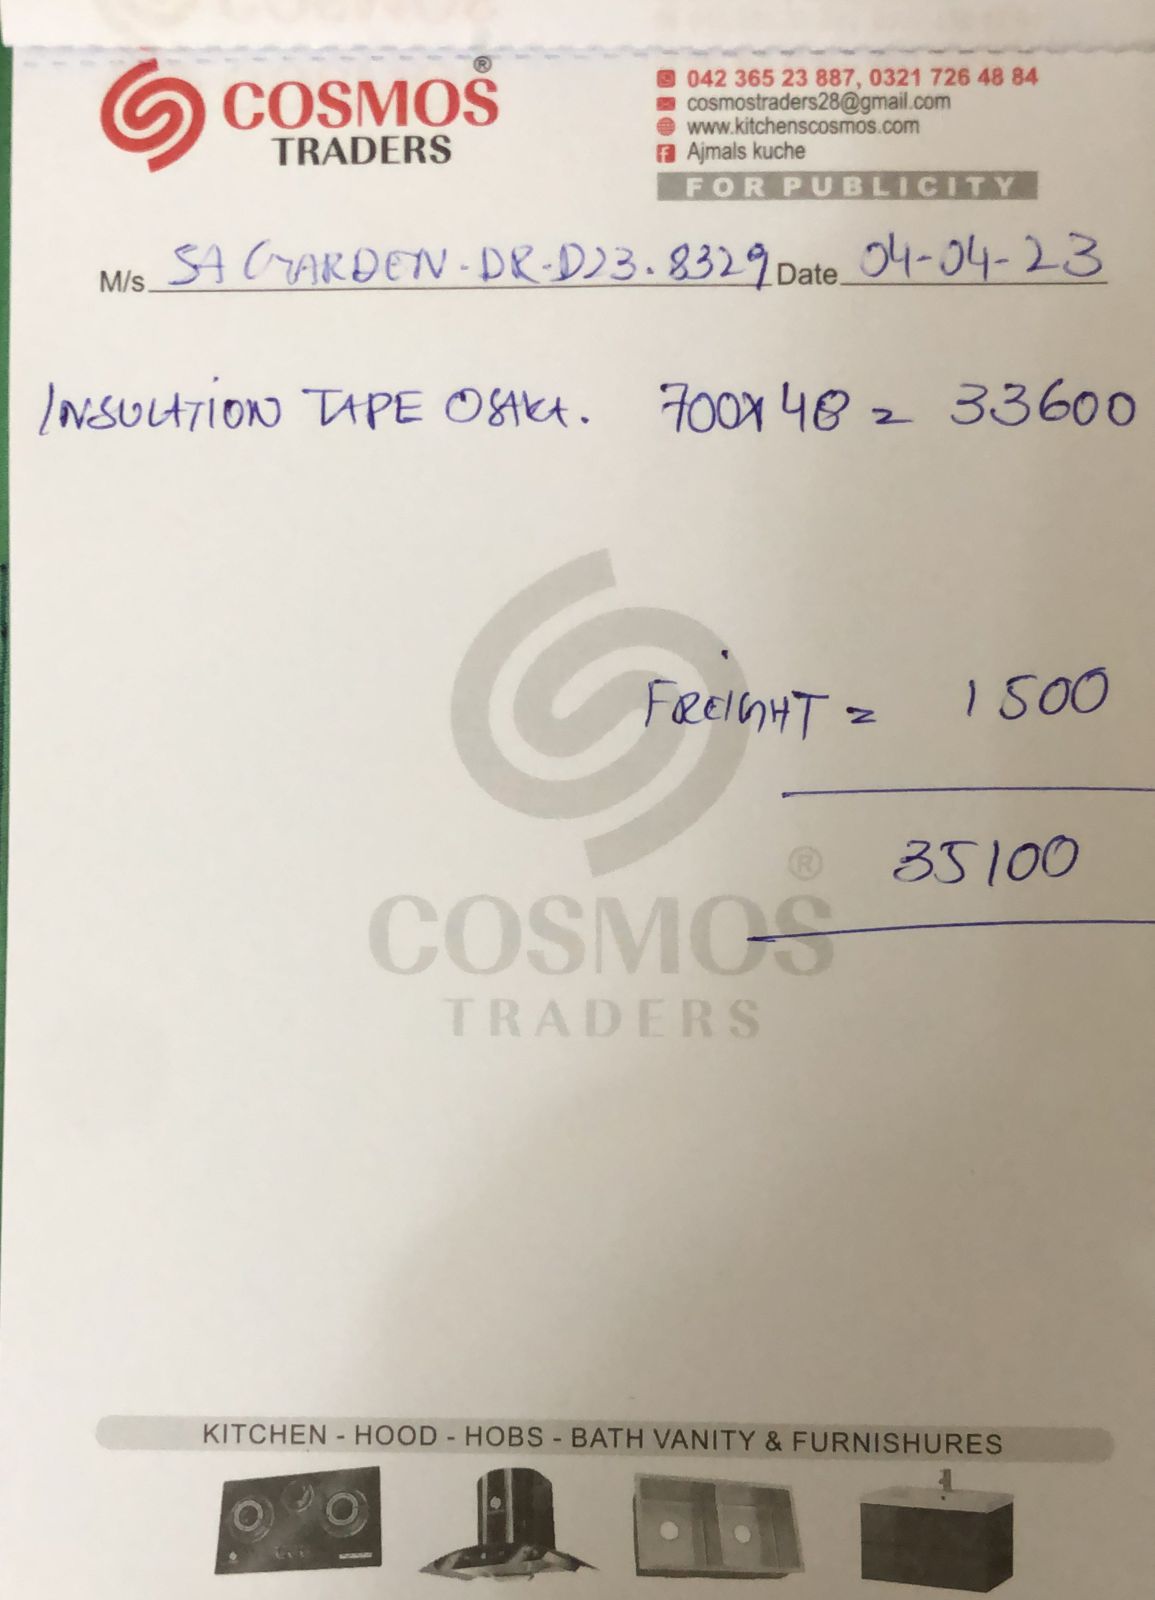 COSMOS ®
TRADERS
042 365 23 887, 0321 726 48 84
cosmostraders28@gmail.com
www.kitchenscosmos.com
Ajmals kuche
FOR PUBLICITY
M/s SA GARDEN-DR-D23.8329 Date 04-04-23
INSULATION TAPE OSAKA. 700x48 = 33600
FREIGHT = 1500
35100
®
COSMOS
TRADERS
KITCHEN - HOOD - HOBS - BATH VANITY & FURNISHURES